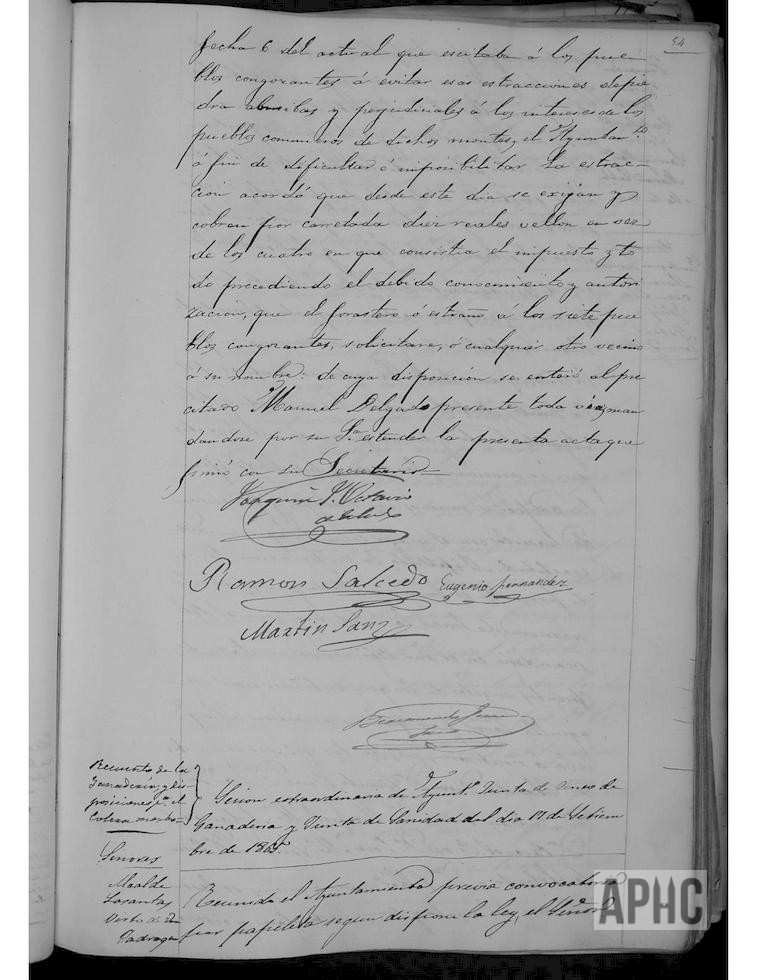 54
fecha 6 del actual que escitaba á los pue-
blos congozantes á evitar esas estracciones de pie
dra abusibas y perjudiciales á los intereses de los
pueblos comuneros de dichos montes, el Ayuntam.to
á fin de dificultar é imposibilitar la estrac-
cion acordó que desde este dia se exijan y
cobren por carretada diez reales vellon en vez
de los cuatro en que consistia el impuesto y to
do precediendo el debido conocimiento y autori
zacion, que el forastero ó estraño á los siete pue
blos congozantes, solicitare, ó cualquier otro vecino
á su nombre: de cuya disposicion se enteró al pre
citado Manuel Delgado presente toda vez, man
dandose por su Sª estender la presente acta que
firmó con su Secretario
Joaquin Y. Octavio
de Toledo
Ramon Salcedo Eugenio Fernandez
Martin Sanz
Recuento de la
Ganaderia, y dis-
posiciones p.ª el
Colera morbo
Sesion extraordinaria de Ayunt.º Junta de
Ganaderia y Junta de Sanidad del dia 17 de Setiem
bre de 1865
Señores
Reunido el Ayuntamiento previa convocatoria
por papeleta segun dispone la ley, el Señor
APHC